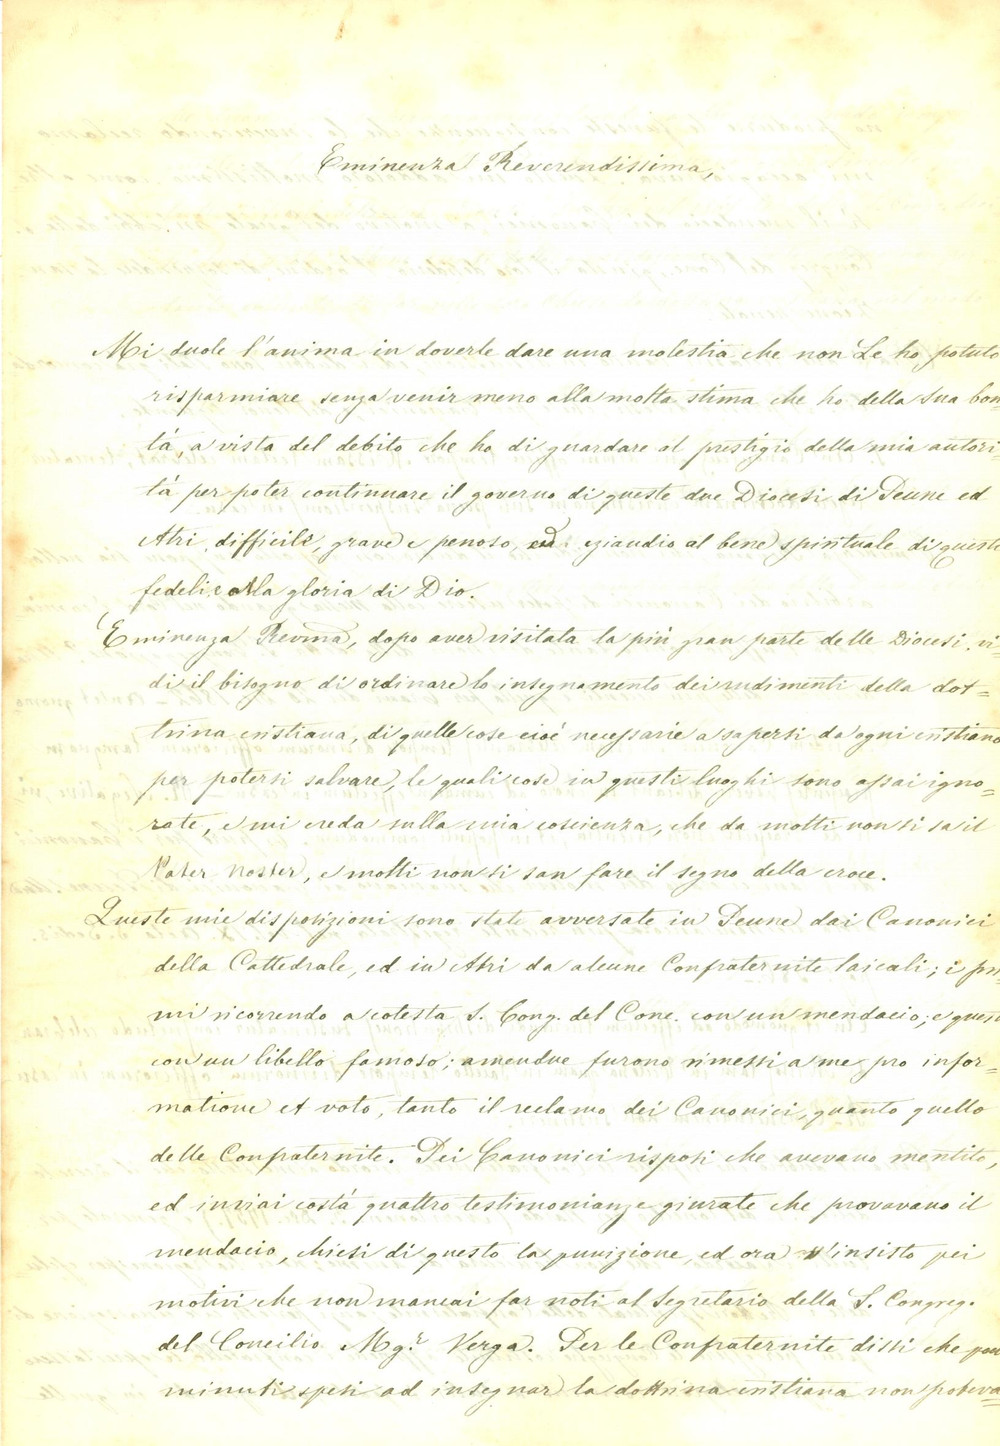 Eminenza Reverendissima,
Mi duole l'anima in doverle dare una molestia che non Le ho potuto
risparmiare senza venir meno alla molta stima che ho della Sua bon-
tà, a vista del debito che ho di guardare al prestigio della mia autori-
tà per poter continuare il governo di queste due Diocesi di Penne ed
Atri, difficile, grave e penoso, ed eziandio al bene spirituale di questi
fedeli e alla gloria di Dio.
Eminenza Revma, dopo aver visitata la più gran parte delle Diocesi, vi=
di il bisogno di ordinare lo insegnamento dei rudimenti della dot=
trina cristiana, di quelle cose cioè necessarie a sapersi da ogni cristiano
per potersi salvare, le quali cose in questi luoghi sono assai igno=
rate, e mi creda sulla mia coscienza, che da molti non si sa il
Pater Noster, e molti non si san fare il segno della croce.
Queste mie disposizioni sono state avversate in Penne dai Canonici
della Cattedrale, ed in Atri da alcune Confraternite laicali; i pri=
mi ricorrendo a cotesta S. Cong. del Conc. con un mendacio; e queste
con un libello famoso; amendue furono rimessi a me pro infor=
matione et voto, tanto il reclamo dei Canonici, quanto quello
delle Confraternite. Dei Canonici risposi che avevano mentito,
ed inviai costà quattro testimonianze giurate che provavano il
mendacio, chiesi di questo la punizione, ed ora v'insisto pei
motivi che non mancai far noti al Segretario della S. Congreg.
del Concilio Mgr. Verga. Per le Confraternite dissi che pochi
minuti spesi ad insegnar la dottrina cristiana non poteva=